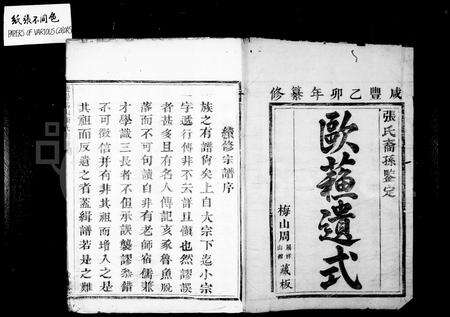 紙張不同色
PAPERS OF VARIOUS COLORS
咸豐乙卯年纂修
張氏裔孫鑑定
歐蘇遺式
梅山周
藏板
續修宗譜序
族之有譜尙矣上自大宗下迄小宗
一字遞行傳非不云詳且愼也然謬誤
者甚多且有名人傳記亥豕魯魚脫
落而不可句讀自非有老師宿儒兼
才學識三長者不但承誤襲謬參錯
不可徵信并有非其祖而增入之是
其祖而反遺之者蓋緝譜若是之難